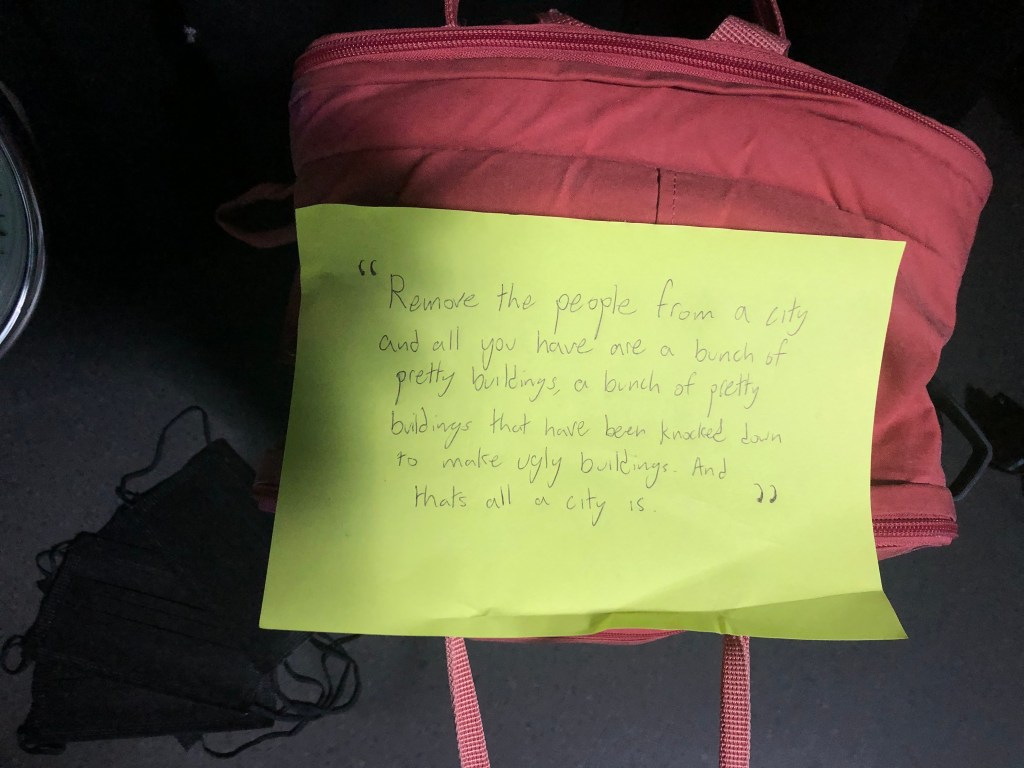 “Remove the people from a city
and all you have are a bunch of
pretty buildings, a bunch of pretty
buildings that have been knocked down
to make ugly buildings. And
thats all a city is. ”